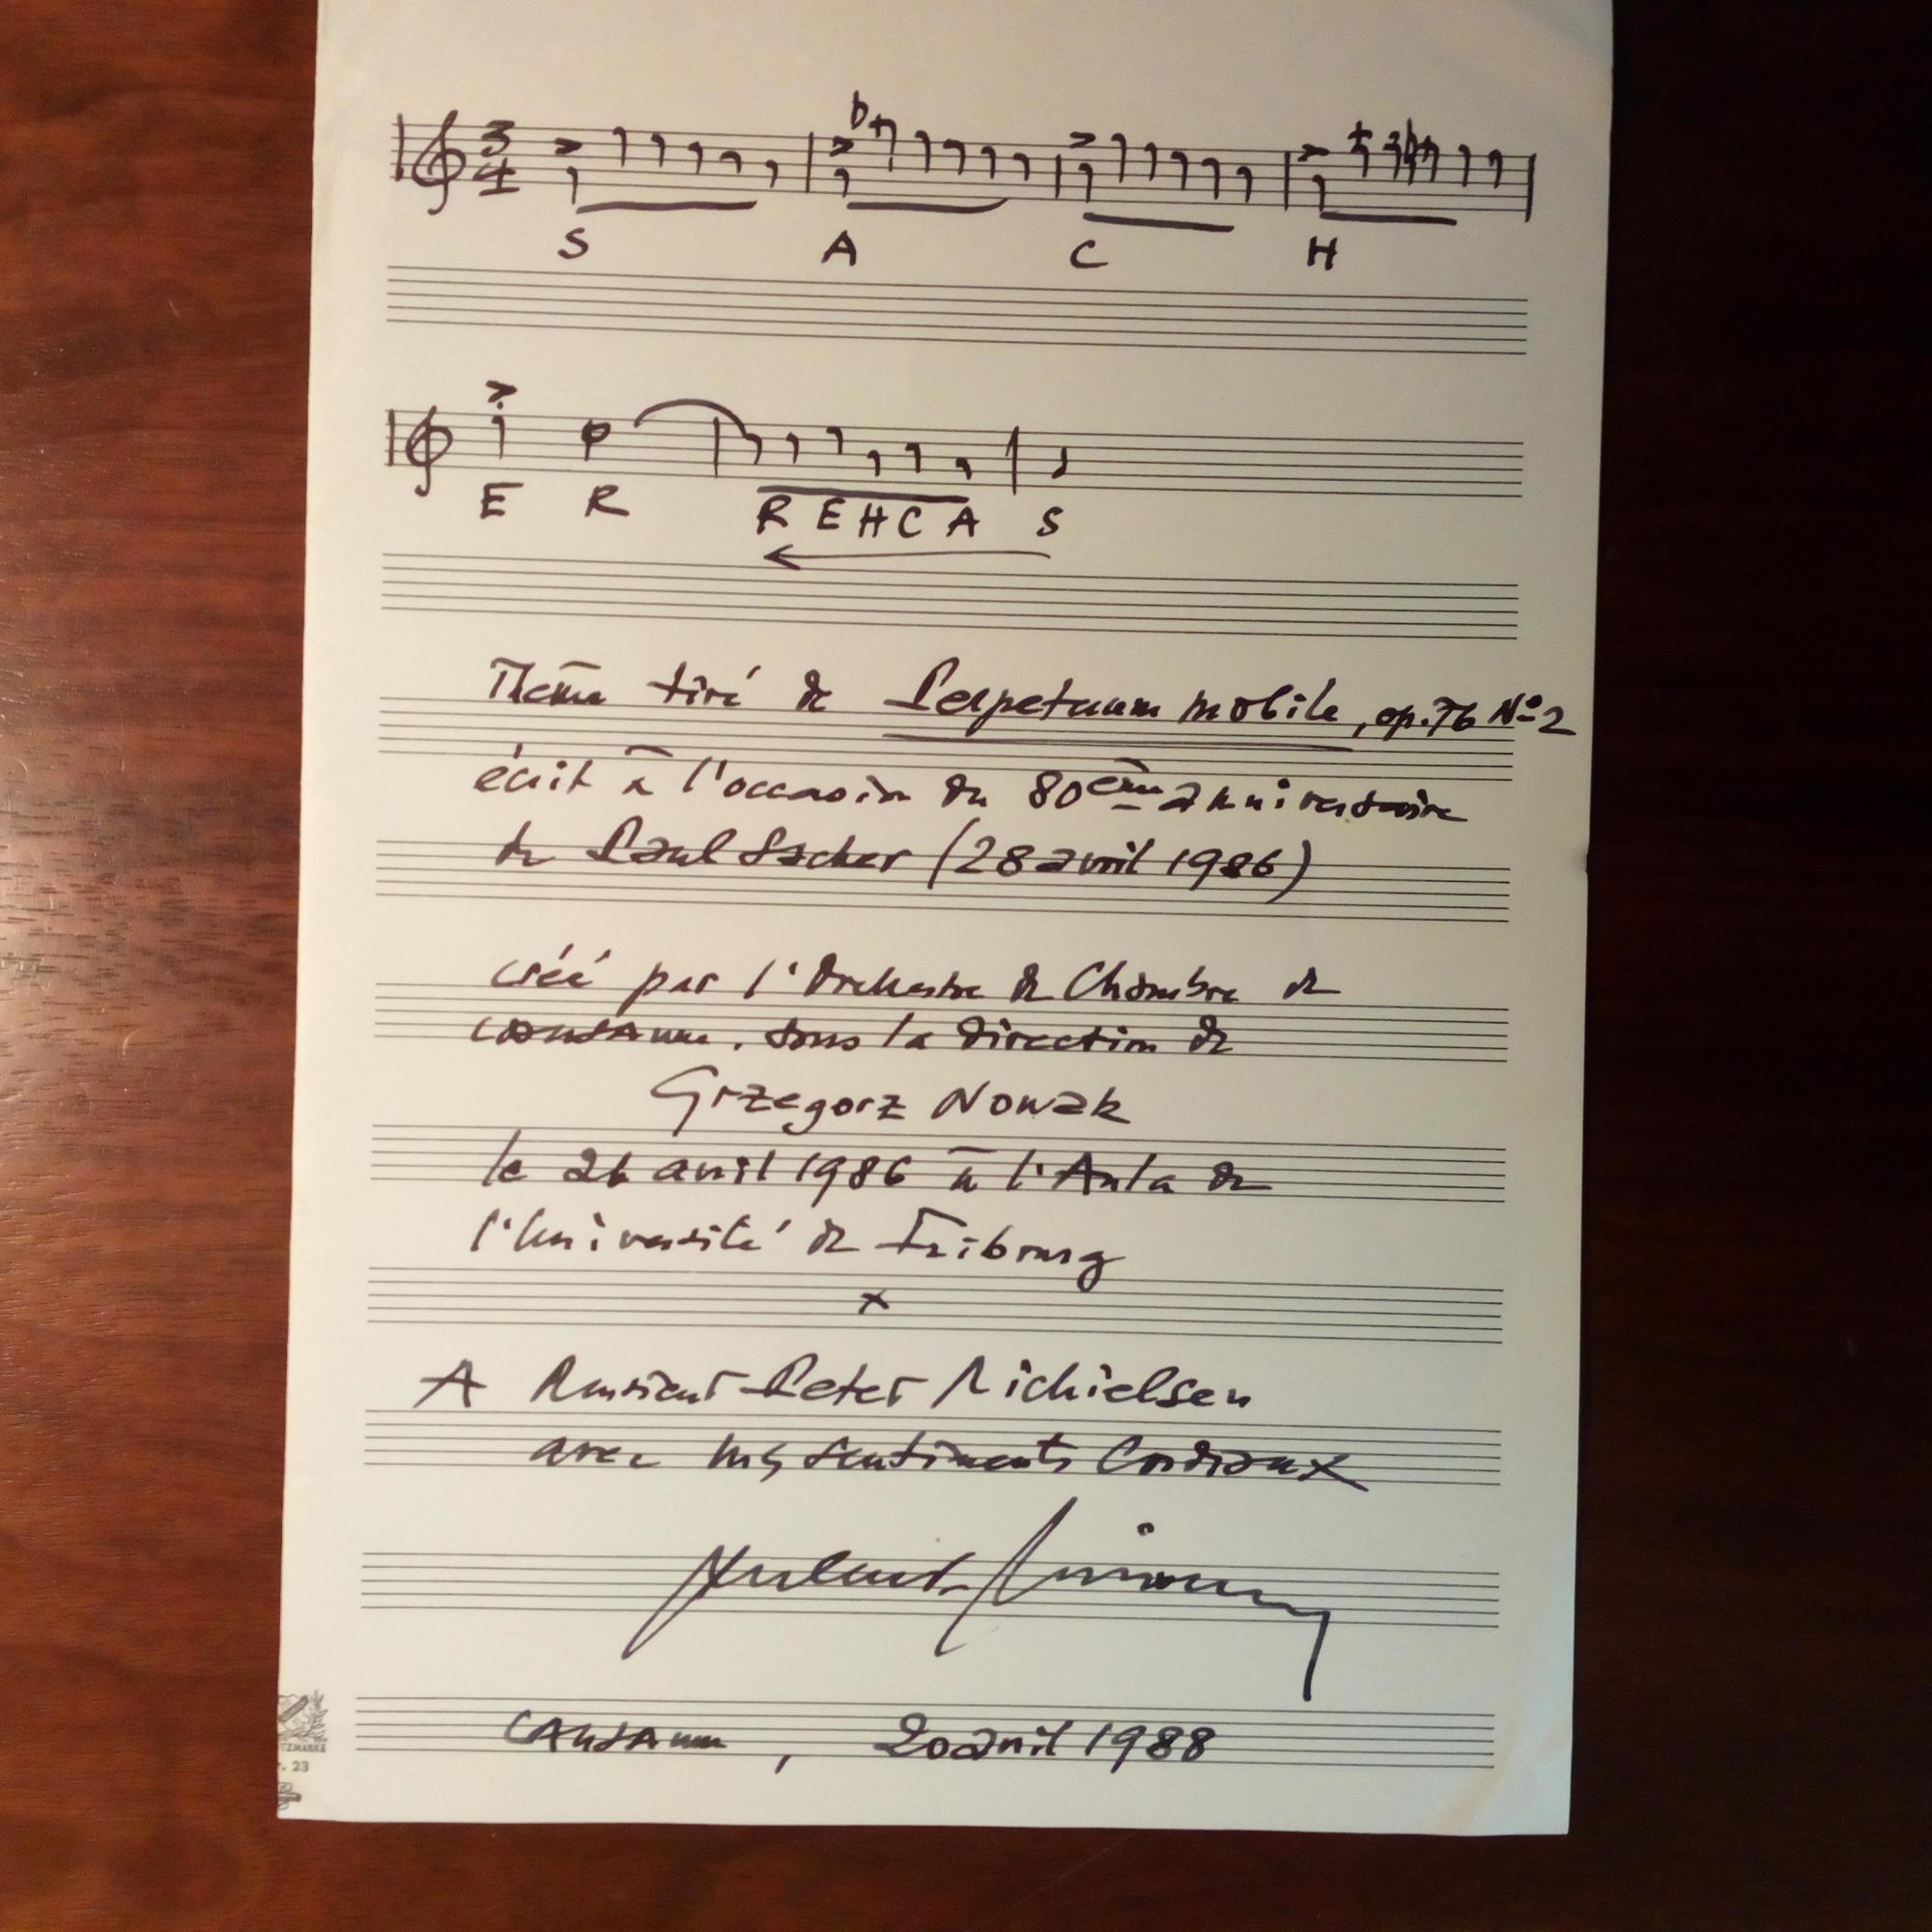 3
4
S A C H
E R R E H C A S
Thème tiré de Perpetuum mobile, op. 76 No 2
écrit à l'occasion du 80ème anniversaire
de Paul Sacher (28 avril 1986)
créé par l'Orchestre de Chambre de
Lausanne, sous la direction de
Grzegorz Nowak
le 26 avril 1986 à l'Aula de
l'Université de Fribourg
x
A Monsieur Peter Michielsen
avec mes sentiments cordiaux
Lausanne, 20 avril 1988
TZMARKE
. 23